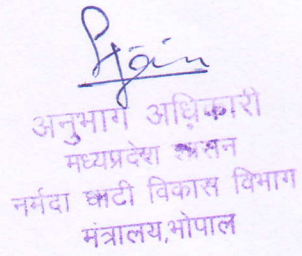 Jain
अनुभाग अधिकारी
मध्यप्रदेश शासन
नर्मदा घाटी विकास विभाग
मंत्रालय,भोपाल